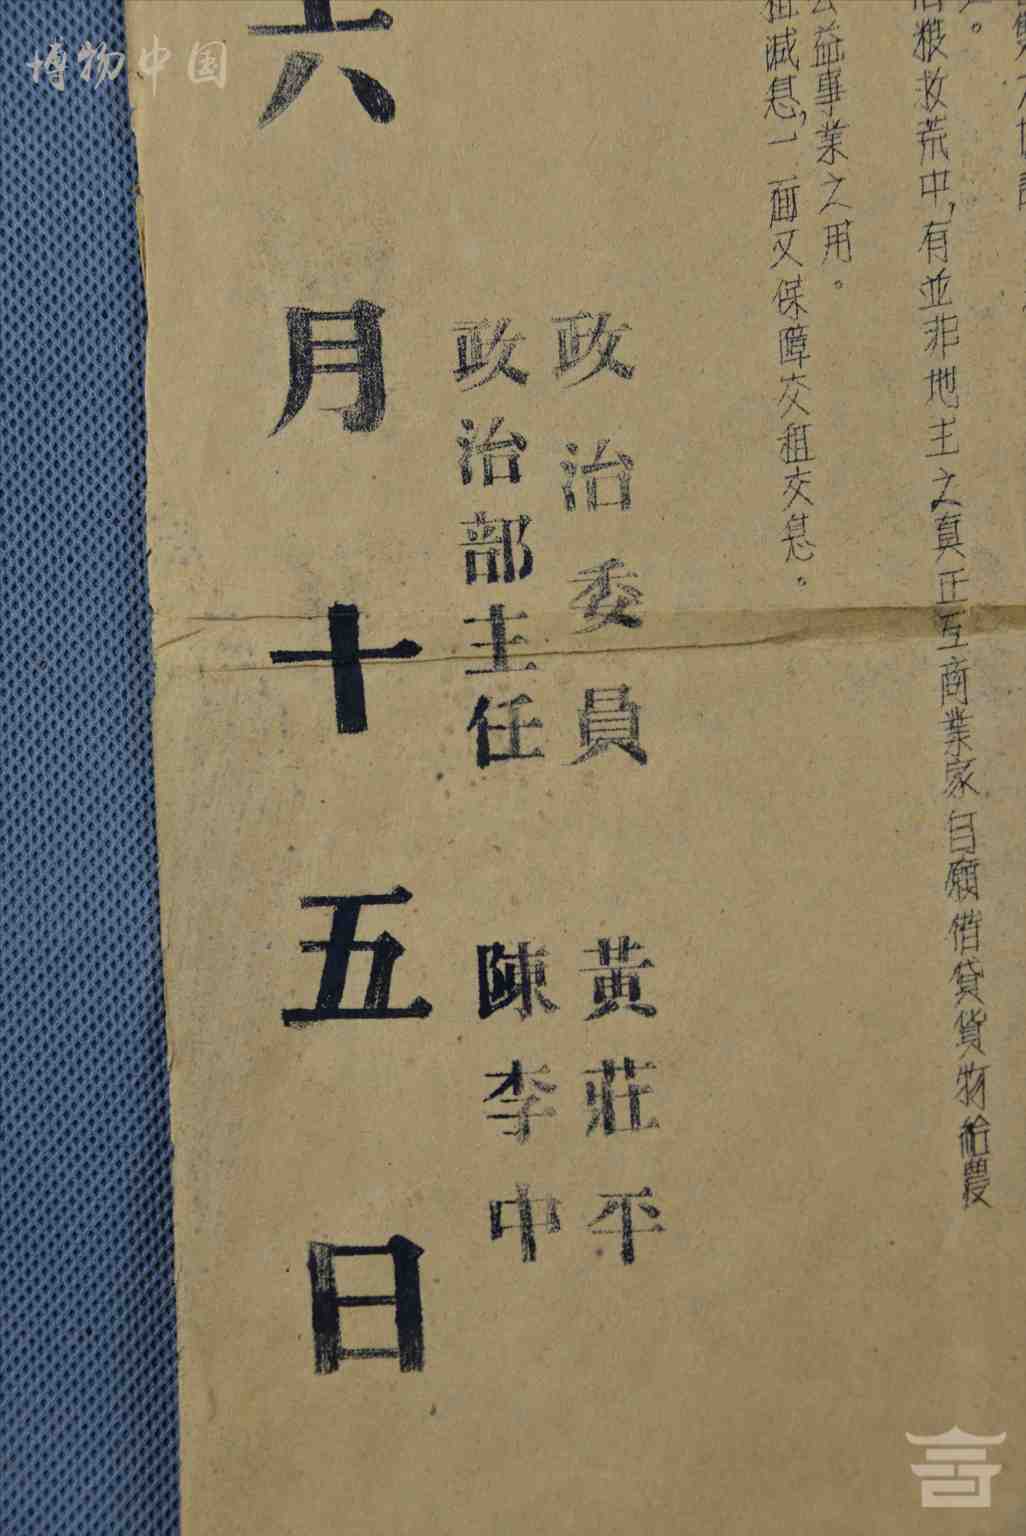 借糧救荒中,有並非地主之真正工商業家自願借貸貨物給農
公益事業之用。
租減息,一面又保障交租交息。
政治委員 黃莊平
政治部主任 陳李中
六月十五日
博物中国